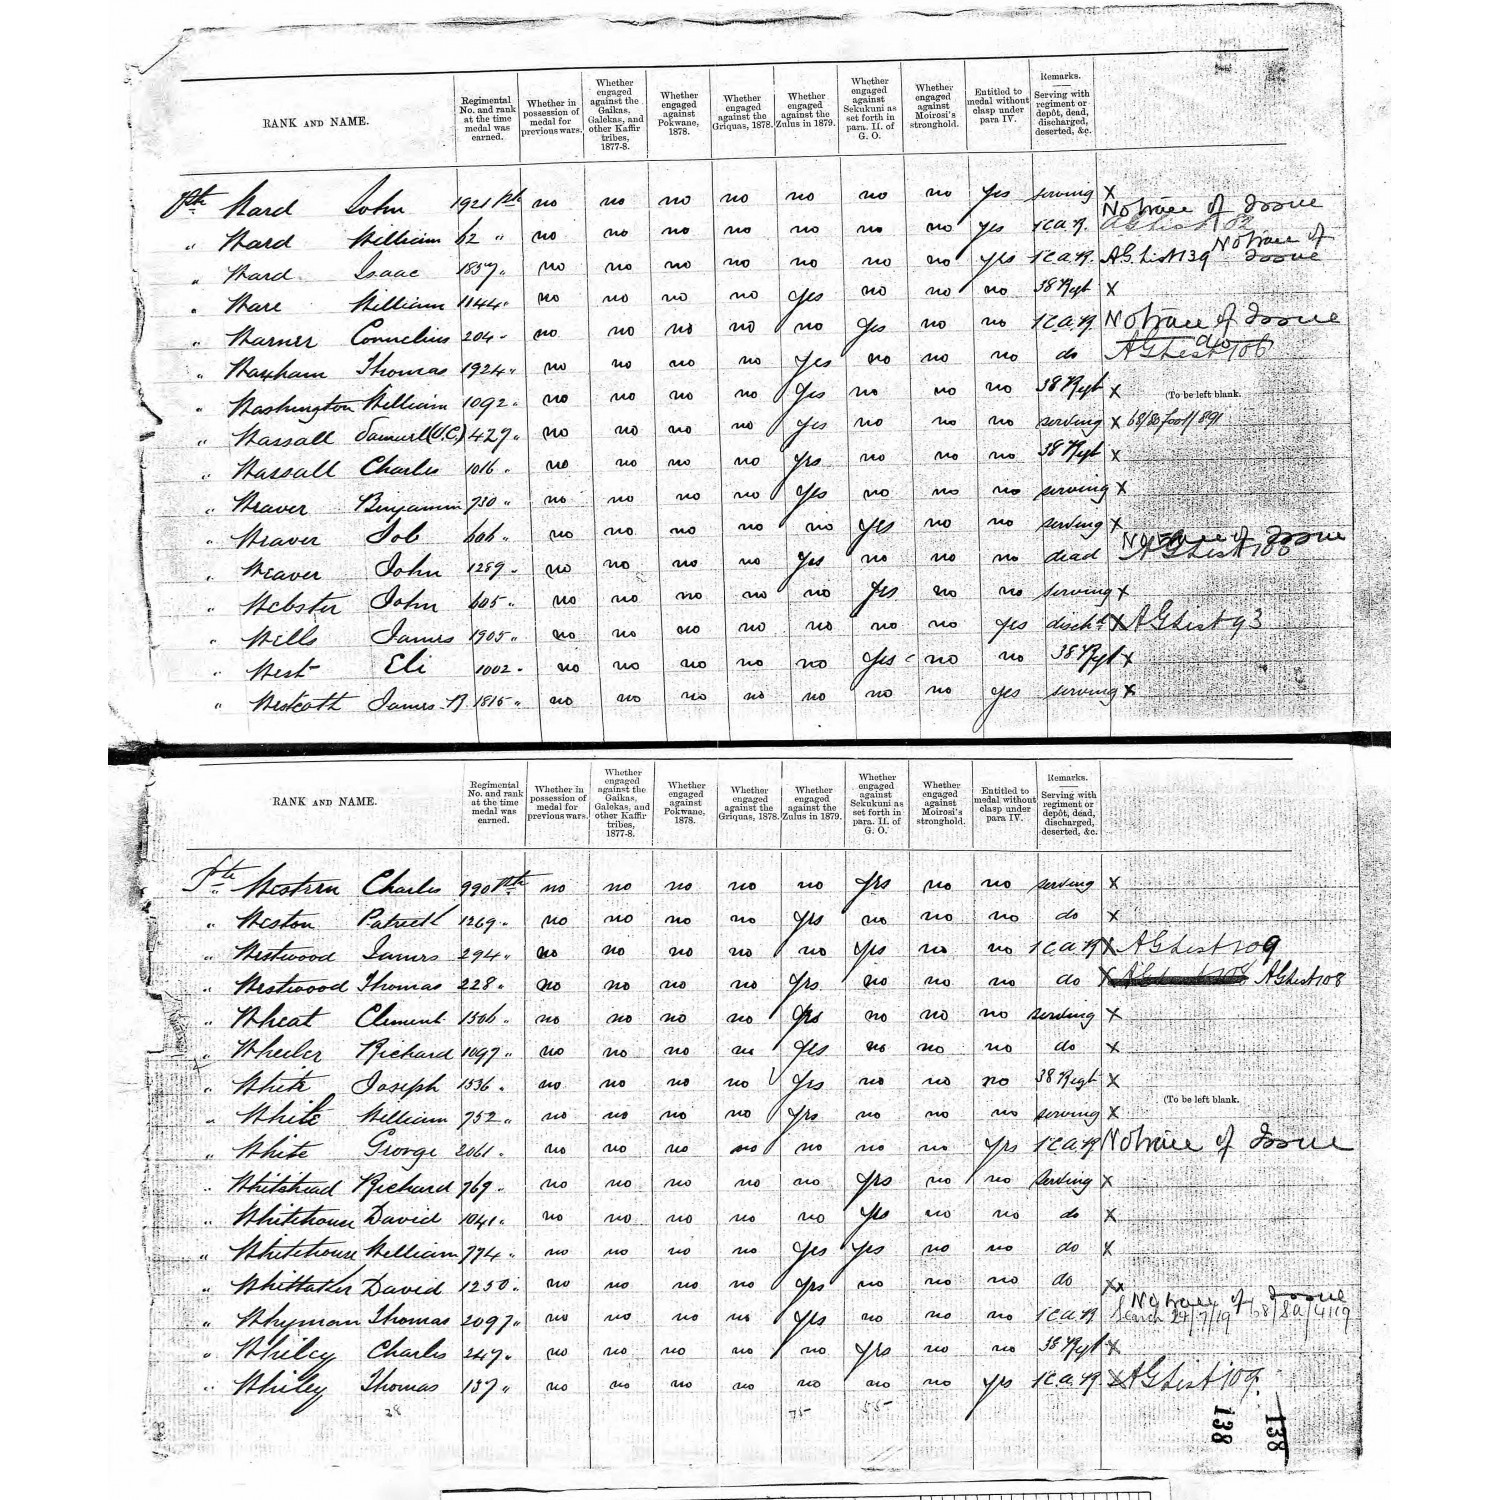 RANK AND NAME. Regimental No. and rank at the time medal was earned. Whether in possession of medal for previous wars. Whether engaged against the Gaikas, Galekas, and other Kaffir tribes, 1877-8. Whether engaged against Pokwane, 1878. Whether engaged against the Griquas, 1878. Whether engaged against the Zulus in 1879. Whether engaged against Sekukuni as set forth in para. II. of G. O. Whether engaged against Moirosi's stronghold. Entitled to medal without clasp under para IV. Remarks. Serving with regiment or depôt, dead, discharged, deserted, &c.
Pte Ward John 1921 Pte no no no no no no no yes serving X
No trace of Issue
" Ward William 62 " no no no no no no no yes 1 C.a.R. AG List 102
No trace of
" Ward Isaac 1857 " no no no no no no no yes 1 C.a.R. AG. List 139 Issue
" Ware William 1144 " no no no no yes no no no 38 Regt X
" Warner Cornelius 204 " no no no no no yes no no 1 C.a.R No trace of Issue
do
" Warham Thomas 1924 " no no no no yes no no no do AG List 106
" Washington William 1092 " no no no no yes no no no 38 Regt X (To be left blank.
" Wassall Samuel (V.C.) 427 " no no no no yes no no no serving X 68/80 foot/891
" Wassall Charles 1016 " no no no no yes no no no 38 Regt X
" Weaver Benjamin 730 " no no no no yes no no no serving X
" Weaver Job 606 " no no no no no yes no no serving X
No trace of Issue
" Weaver John 1289 " no no no no yes no no no dead AG List 106
" Webster John 605 " no no no no no yes no no serving X
" Wells James 1905 " no no no no no no no yes disch'd X AG List 93
" West Eli 1002 " no no no no no yes no no 38 Regt X
" Westcoth James R 1815 " no no no no no no no yes serving X
RANK AND NAME. Regimental No. and rank at the time medal was earned. Whether in possession of medal for previous wars. Whether engaged against the Gaikas, Galekas, and other Kaffir tribes, 1877-8. Whether engaged against Pokwane, 1878. Whether engaged against the Griquas, 1878. Whether engaged against the Zulus in 1879. Whether engaged against Sekukuni as set forth in para. II. of G. O. Whether engaged against Moirosi's stronghold. Entitled to medal without clasp under para IV. Remarks. Serving with regiment or depôt, dead, discharged, deserted, &c.
Pte " Western Charles 990 Pte no no no no no yes no no serving X
" Weston Patrick 1269 " no no no no yes no no no do X
" Westwood James 294 " no no no no no yes no no 1 C.a.R X AG List 109
" Westwood Thomas 228 " no no no no yes no no no do X AG List 108
" Wheat Clement 1506 " no no no no yes no no no serving X
" Wheeler Richard 1097 " no no no no yes no no no do X
" White Joseph 1536 " no no no no yes no no no 38 Regt X
(To be left blank.
" White William 752 " no no no no yes no no no serving X
" White George 2061 " no no no no no no no yes 1 C.a.R No trace of Issue
" Whitehead Richard 769 " no no no no no yes no no serving X
" Whitehouse David 1041 " no no no no no yes no no do X
" Whitehouse William 774 " no no no no yes yes no no do X
" Whittaker David 1250 " no no no no yes no no no do Xx
No trace of Issue
" Whyman Thomas 2097 " no no no no yes no no no 1 C.a.R Search 24/7/19 68/80/4119
" Whiley Charles 247 " no no no no no yes no no 38 Regt X
" Whiley Thomas 137 " no no no no no no no yes 1 C.a.R X AG List 109.
28 75 55
138 138